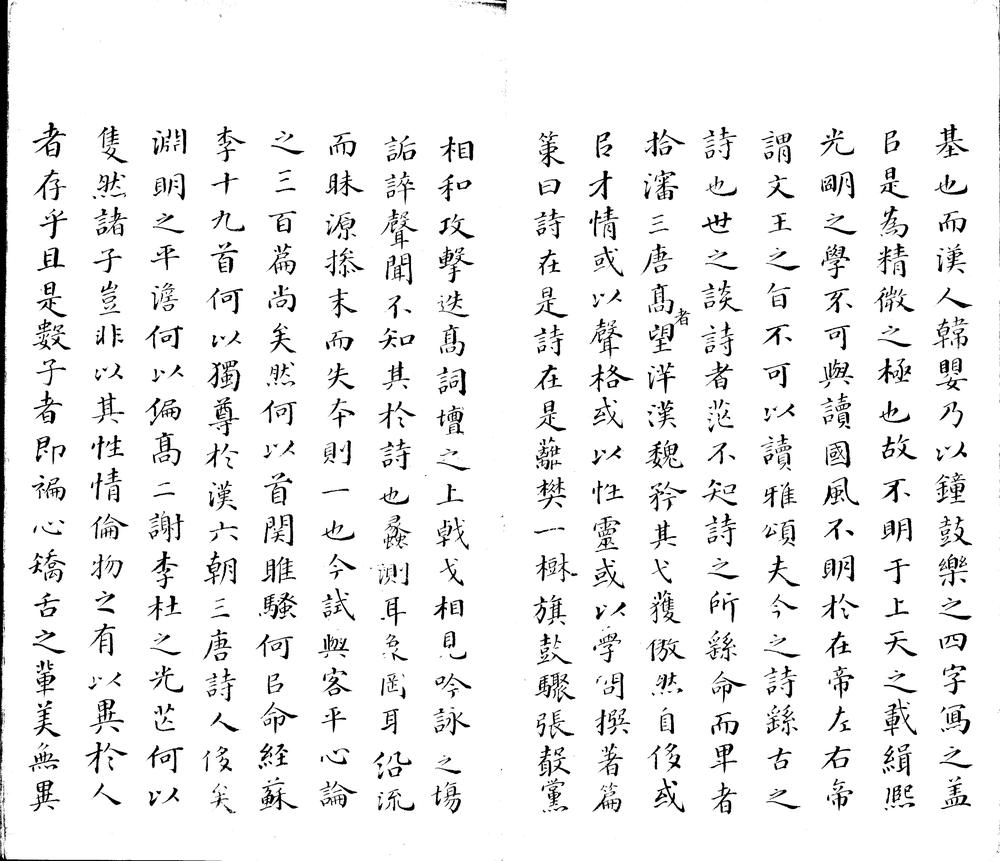 基也而漢人韓嬰乃以鐘鼓樂之四字寫之盖
㠯是為精微之極也故不明于上天之載緝熈
光朙之學不可與讀國風不明於在帝左右帝
謂文王之旨不可以讀雅頌夫今之詩繇古之
詩也世之談詩者茫不知詩之所繇命而卑者
拾瀋三唐髙者望洋漢魏矜其弋獲傲然自侈或
㠯才情或以聲格或以性靈或以學問撰著篇
策曰詩在是詩在是蘺樊一樹旗鼓驟張聲黨
相和攻擊迭髙詞壇之上戟戈相見吟詠之塲
詬誶聲聞不知其於詩也蠡測耳𥿄固耳沿流
而昧源搽末而失夲則一也今試與客平心論
之三百篇尚矣然何以首関雎騷何㠯命経蘇
李十九首何以獨尊於漢六朝三唐詩人侈矣
淵朙之平澹何以偏髙二謝李杜之光芒何以
隻然諸子豈非以其性情倫物之有以異於人
者存乎且是數子者即褊心矯舌之輩美無異